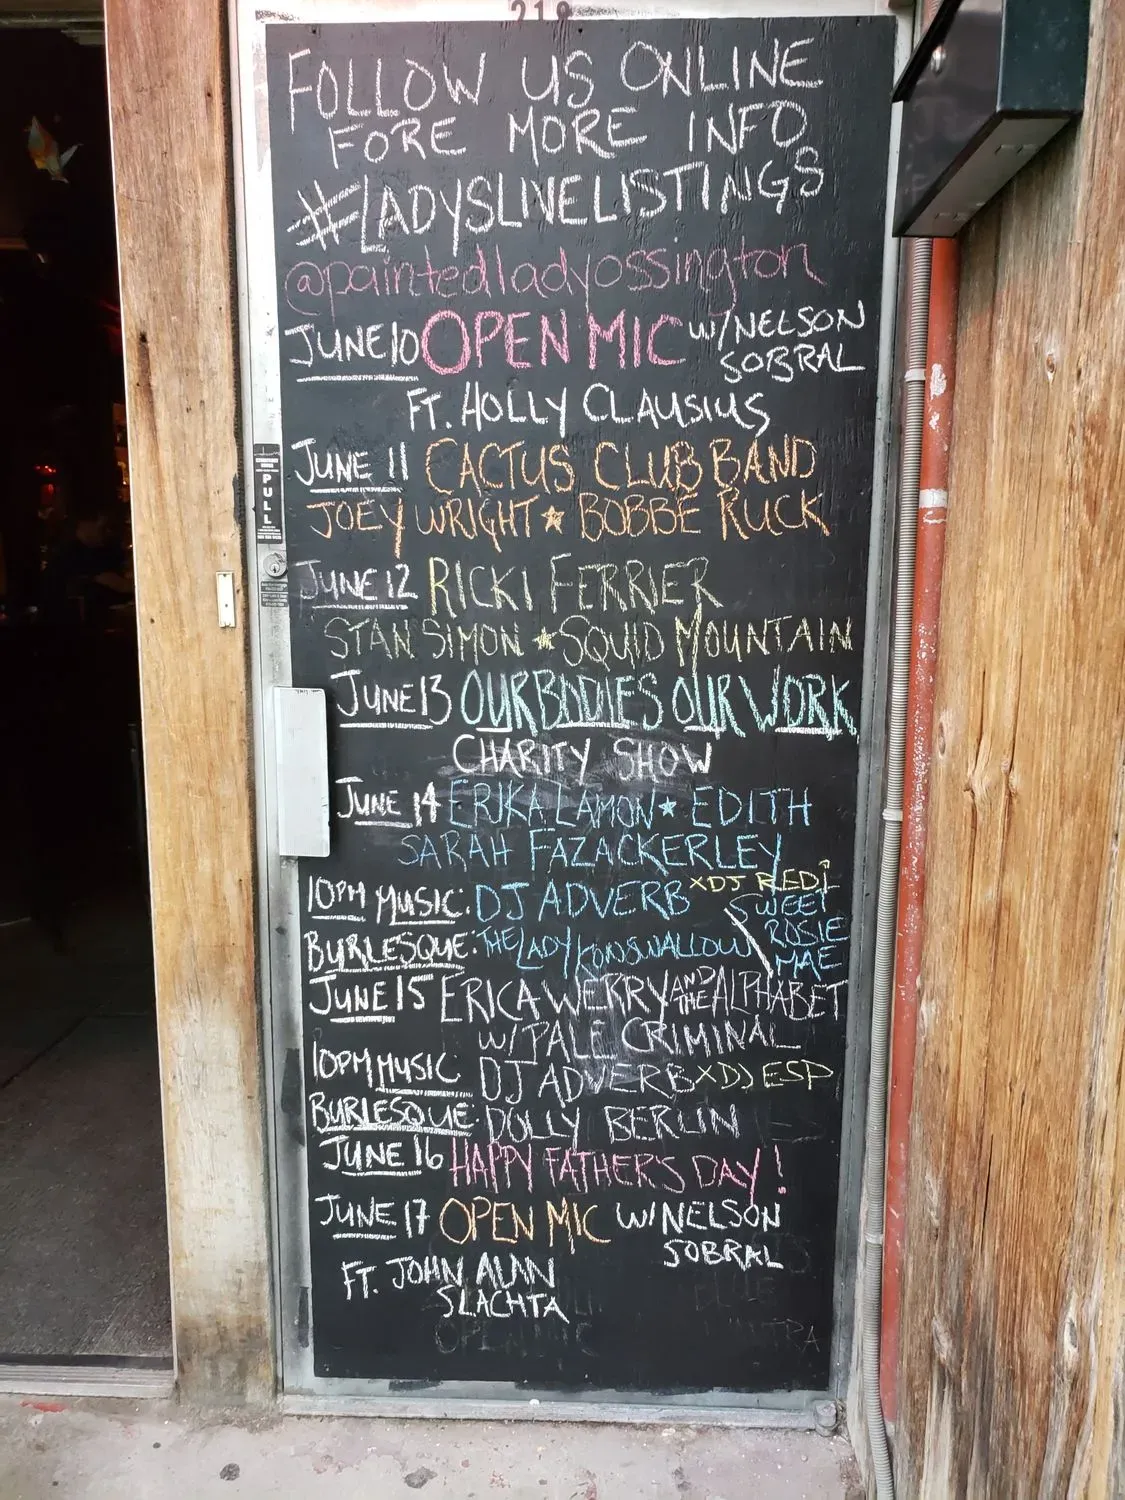 218
FOLLOW US ONLINE
FORE MORE INFO
#LADYSLIVELISTINGS
@paintedladyossington
JUNE 10 OPEN MIC W/NELSON
SOBRAL
FT. HOLLY CLAUSIUS
JUNE 11 CACTUS CLUB BAND
JOEY WRIGHT ★ BOBBE RUCK
JUNE 12 RICKI FERRIER
STAN SIMON ★ SQUID MOUNTAIN
JUNE 13 OUR BODIES OUR WORK
CHARITY SHOW
JUNE 14 ERIKA LAMON ★ EDITH
SARAH FAZACKERLEY
10PM MUSIC: DJ ADVERB X DJ REDI
BURLESQUE: THE LADY \ SWEET
ROSIE
MAE
JUNE 15 ERICA WERRY AND THE ALPHABET
W/ PALE CRIMINAL
10PM MUSIC DJ ADVERB X DJ ESP
BURLESQUE: DOLLY BERLIN
JUNE 16 HAPPY FATHER'S DAY!
JUNE 17 OPEN MIC W/NELSON
SOBRAL
FT. JOHN ALAN
SLACHTA
PULL